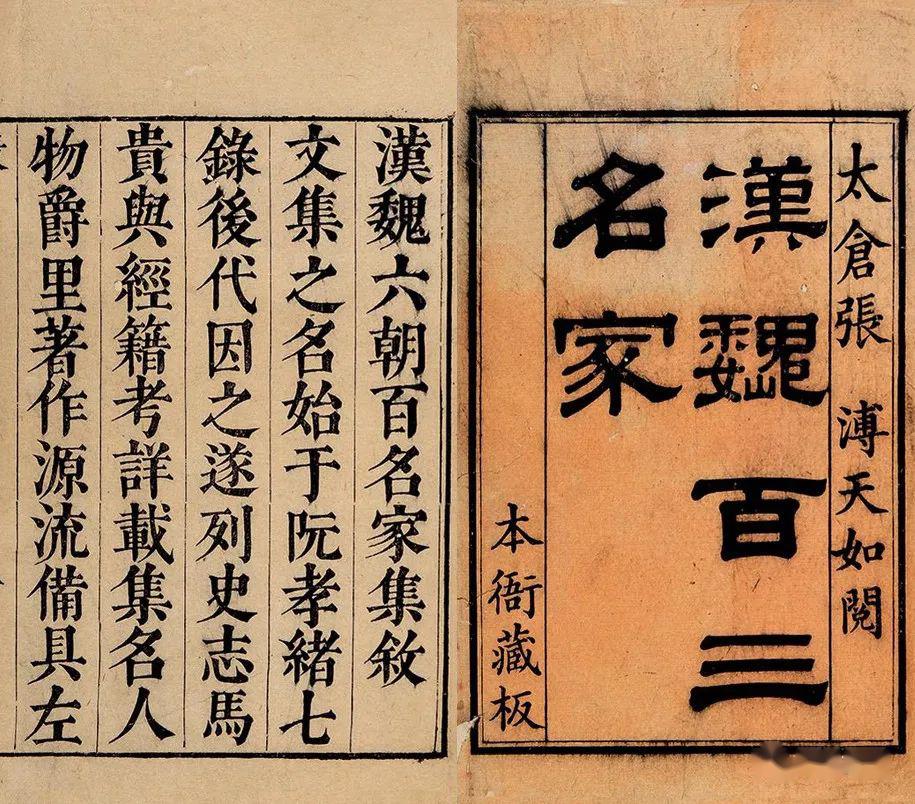 太倉張 溥天如閱
漢魏百三
名家
本衙藏板
漢魏六朝百名家集敘
文集之名始于阮孝緒七
錄後代因之遂列史志馬
貴與經籍考詳載集名人
物爵里著作源流備具左